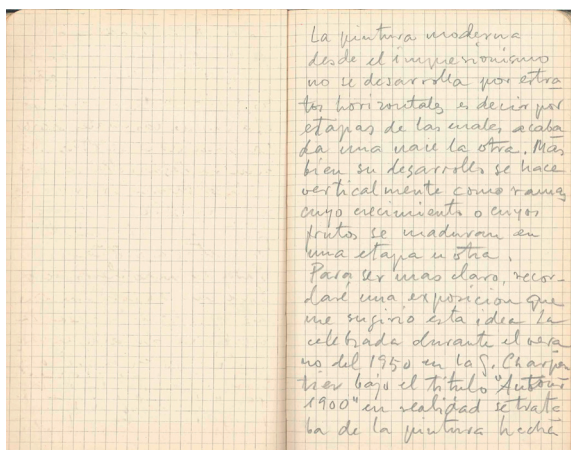 La pintura moderna
desde el impresionismo
no se desarrolla por estra
tos horizontales es decir por
etapas de las cuales acaba
da una nace la otra. Mas
bien su desarrollo se hace
verticalmente como ramas
cuyo crecimiento o cuyos
frutos se maduran en
una etapa u otra.
Para ser mas claro, recor-
daré una exposicion que
me sugirio esta idea La
celebrada durante el vera
no del 1950 en la G. Charpen
tier bajo el titulo "Autour
1900" en realidad se trata
ba de la pintura hecha